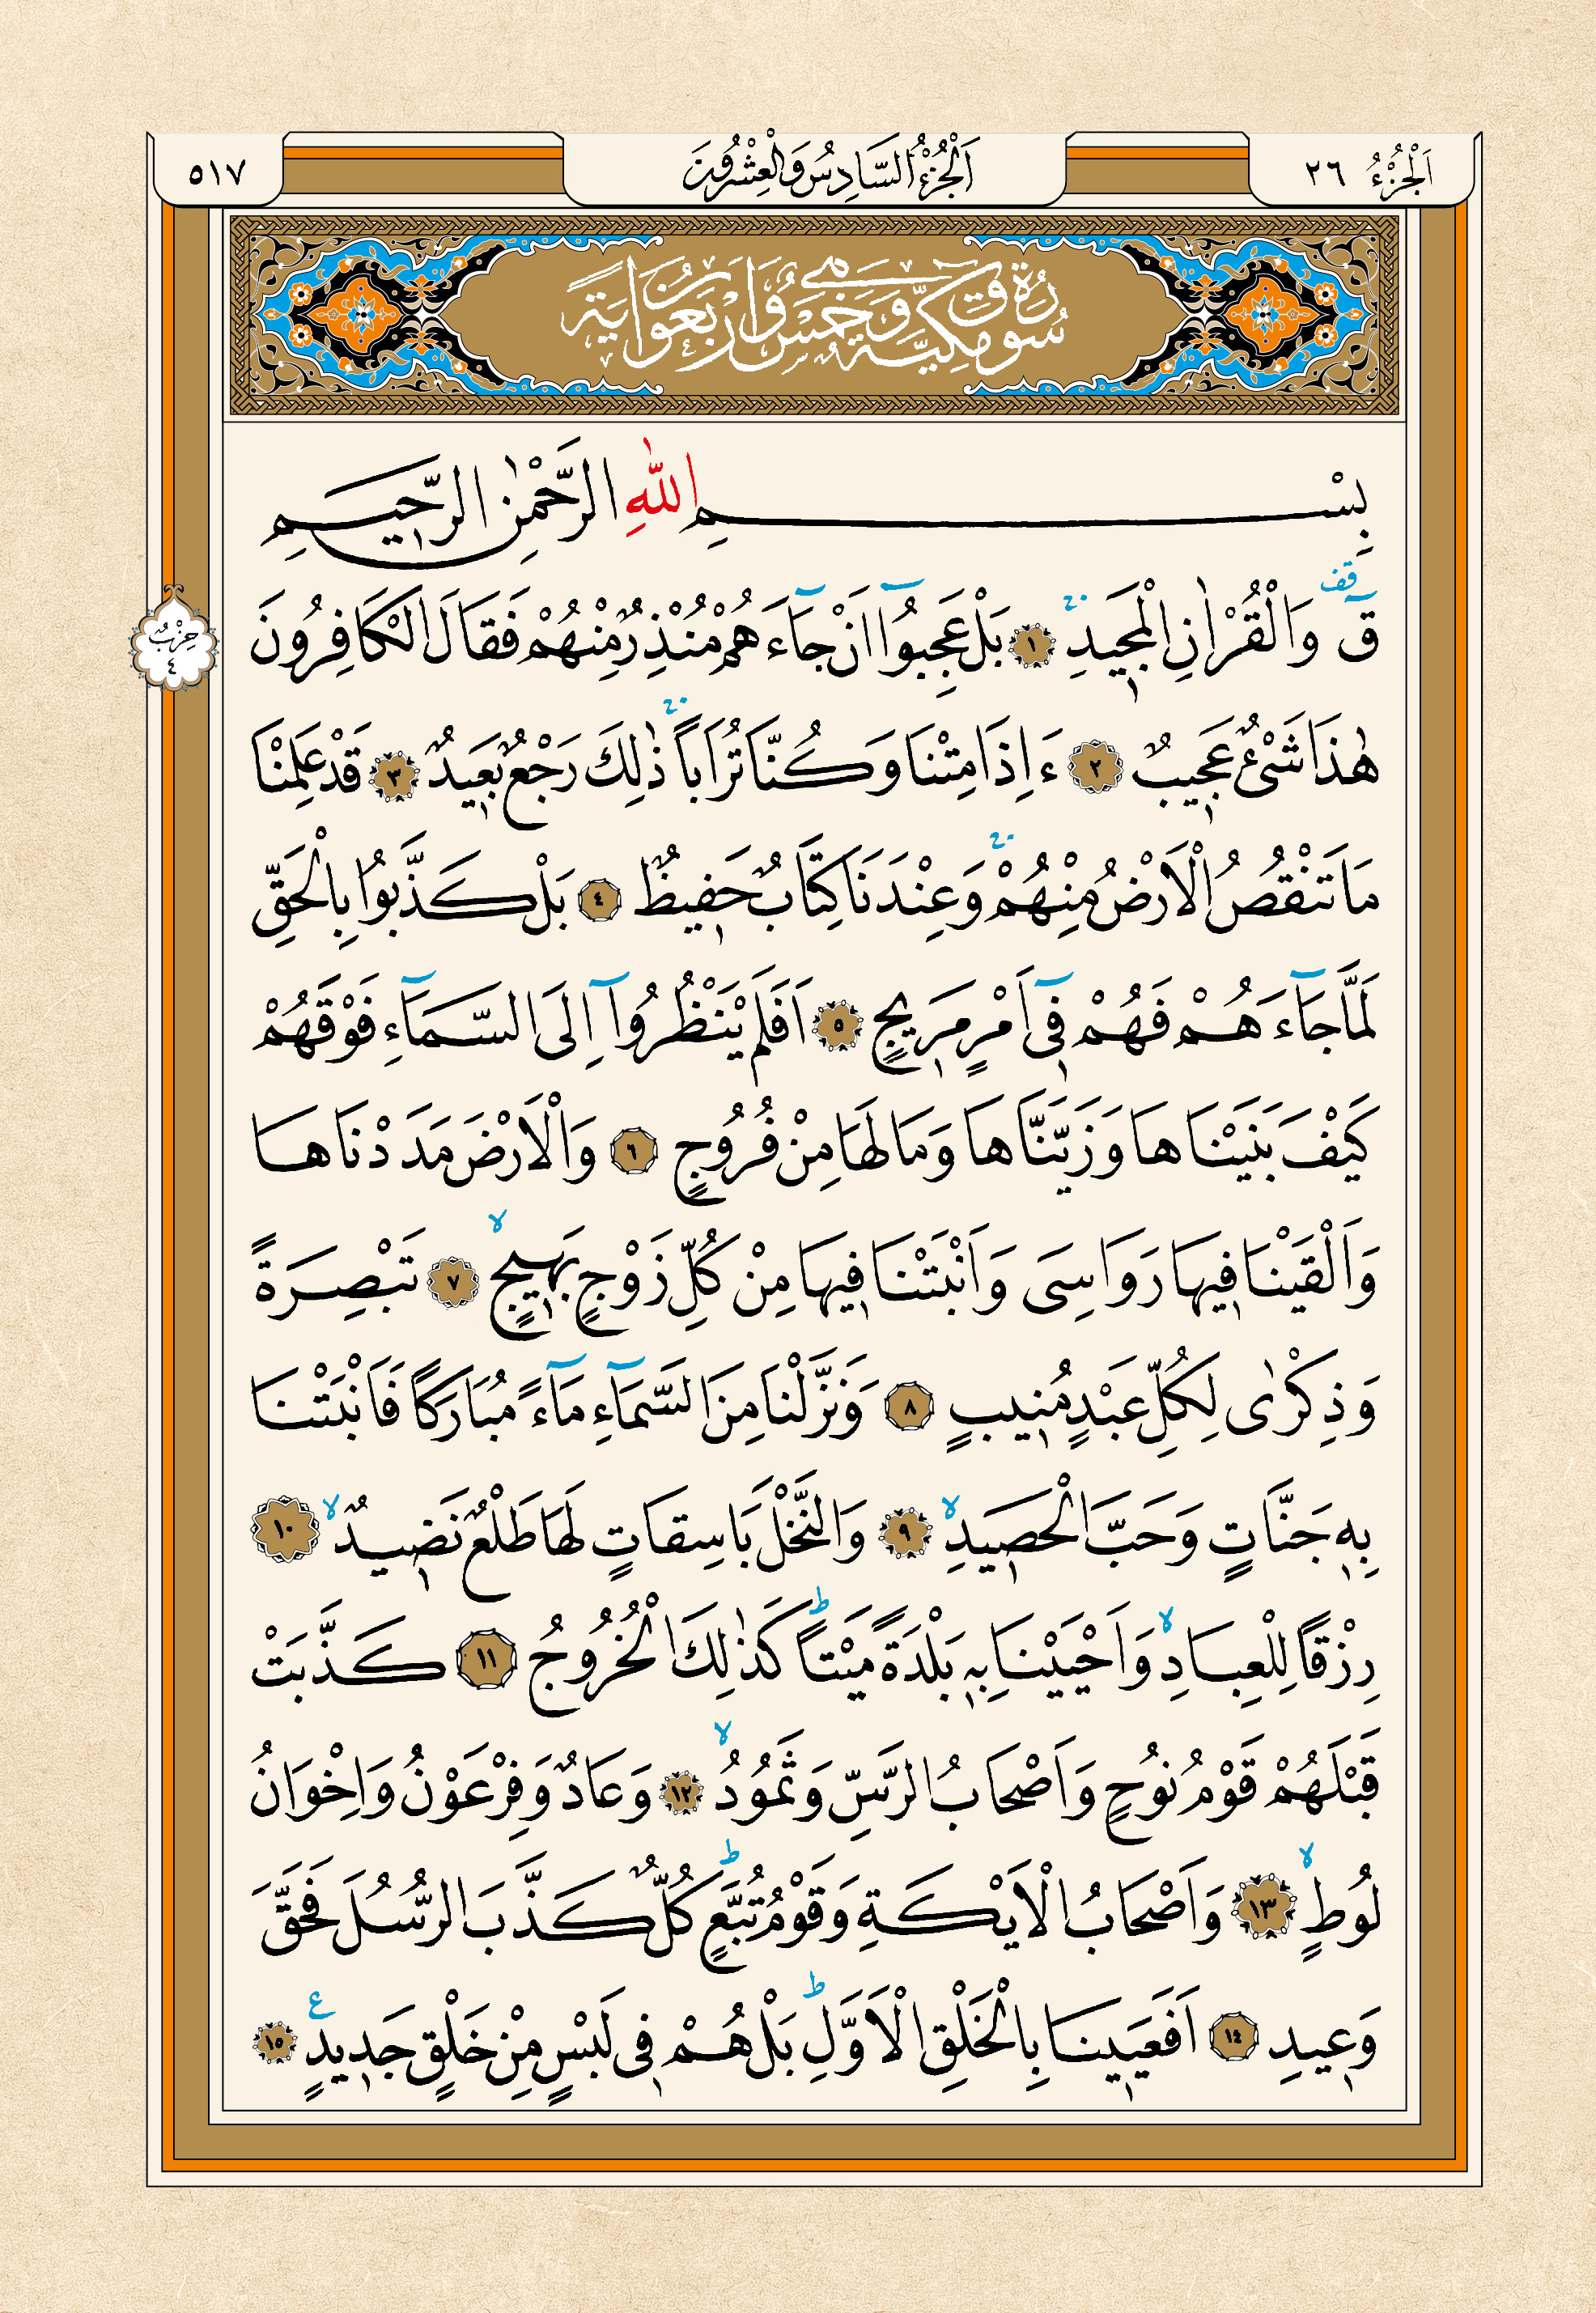 اَلْجُزْءُ ٢٦
اَلْجُزْءُ السَّادِسُ وَالْعِشْرُونَ
٥١٧
سُورَةُ قٓ مَكِّيَّةٌ وَهِيَ خَمْسٌ وَاَرْبَعُونَ اٰيَةً
بِسْمِ اللّٰهِ الرَّحْمٰنِ الرَّحِيمِ
قٓ قف وَالْقُرْاٰنِ الْمَج۪يدِ ١ بَلْ عَجِبُٓوا اَنْ جَٓاءَهُمْ مُنْذِرٌ مِنْهُمْ فَقَالَ الْكَافِرُونَ
حِزْبٌ
٤
هٰذَا شَيْءٌ عَج۪يبٌ ٢ ءَاِذَا مِتْنَا وَكُنَّا تُرَاباًۚ ذٰلِكَ رَجْعٌ بَع۪يدٌ ٣ قَدْ عَلِمْنَا
مَا تَنْقُصُ الْاَرْضُ مِنْهُمْۚ وَعِنْدَنَا كِتَابٌ حَف۪يظٌ ٤ بَلْ كَذَّبُوا بِالْحَقِّ
لَمَّا جَٓاءَهُمْ فَهُمْ ف۪ٓي اَمْرٍ مَر۪يجٍ ٥ اَفَلَمْ يَنْظُرُٓوا اِلَى السَّمَٓاءِ فَوْقَهُمْ
كَيْفَ بَنَيْنَاهَا وَزَيَّنَّاهَا وَمَا لَهَا مِنْ فُرُوجٍ ٦ وَالْاَرْضَ مَدَدْنَاهَا
وَاَلْقَيْنَا ف۪يهَا رَوَاسِيَ وَاَنْبَتْنَا ف۪يهَا مِنْ كُلِّ زَوْجٍ بَه۪يجٍۙ ٧ تَبْصِرَةً
وَذِكْرٰى لِكُلِّ عَبْدٍ مُن۪يبٍ ٨ وَنَزَّلْنَا مِنَ السَّمَٓاءِ مَٓاءً مُبَارَكاً فَاَنْبَتْنَا
بِه۪ جَنَّاتٍ وَحَبَّ الْحَص۪يدِۙ ٩ وَالنَّخْلَ بَاسِقَاتٍ لَهَا طَلْعٌ نَض۪يدٌۙ ١٠
رِزْقاً لِلْعِبَادِۙ وَاَحْيَيْنَا بِه۪ بَلْدَةً مَيْتاًۜ كَذٰلِكَ الْخُرُوجُ ١١ كَذَّبَتْ
قَبْلَهُمْ قَوْمُ نُوحٍ وَاَصْحَابُ الرَّسِّ وَثَمُودُۙ ١٢ وَعَادٌ وَفِرْعَوْنُ وَاِخْوَانُ
لُوطٍۙ ١٣ وَاَصْحَابُ الْاَيْكَةِ وَقَوْمُ تُبَّعٍۜ كُلٌّ كَذَّبَ الرُّسُلَ فَحَقَّ
وَع۪يدِ ١٤ اَفَعَي۪ينَا بِالْخَلْقِ الْاَوَّلِۜ بَلْ هُمْ ف۪ي لَبْسٍ مِنْ خَلْقٍ جَد۪يدٍ ع ١٥